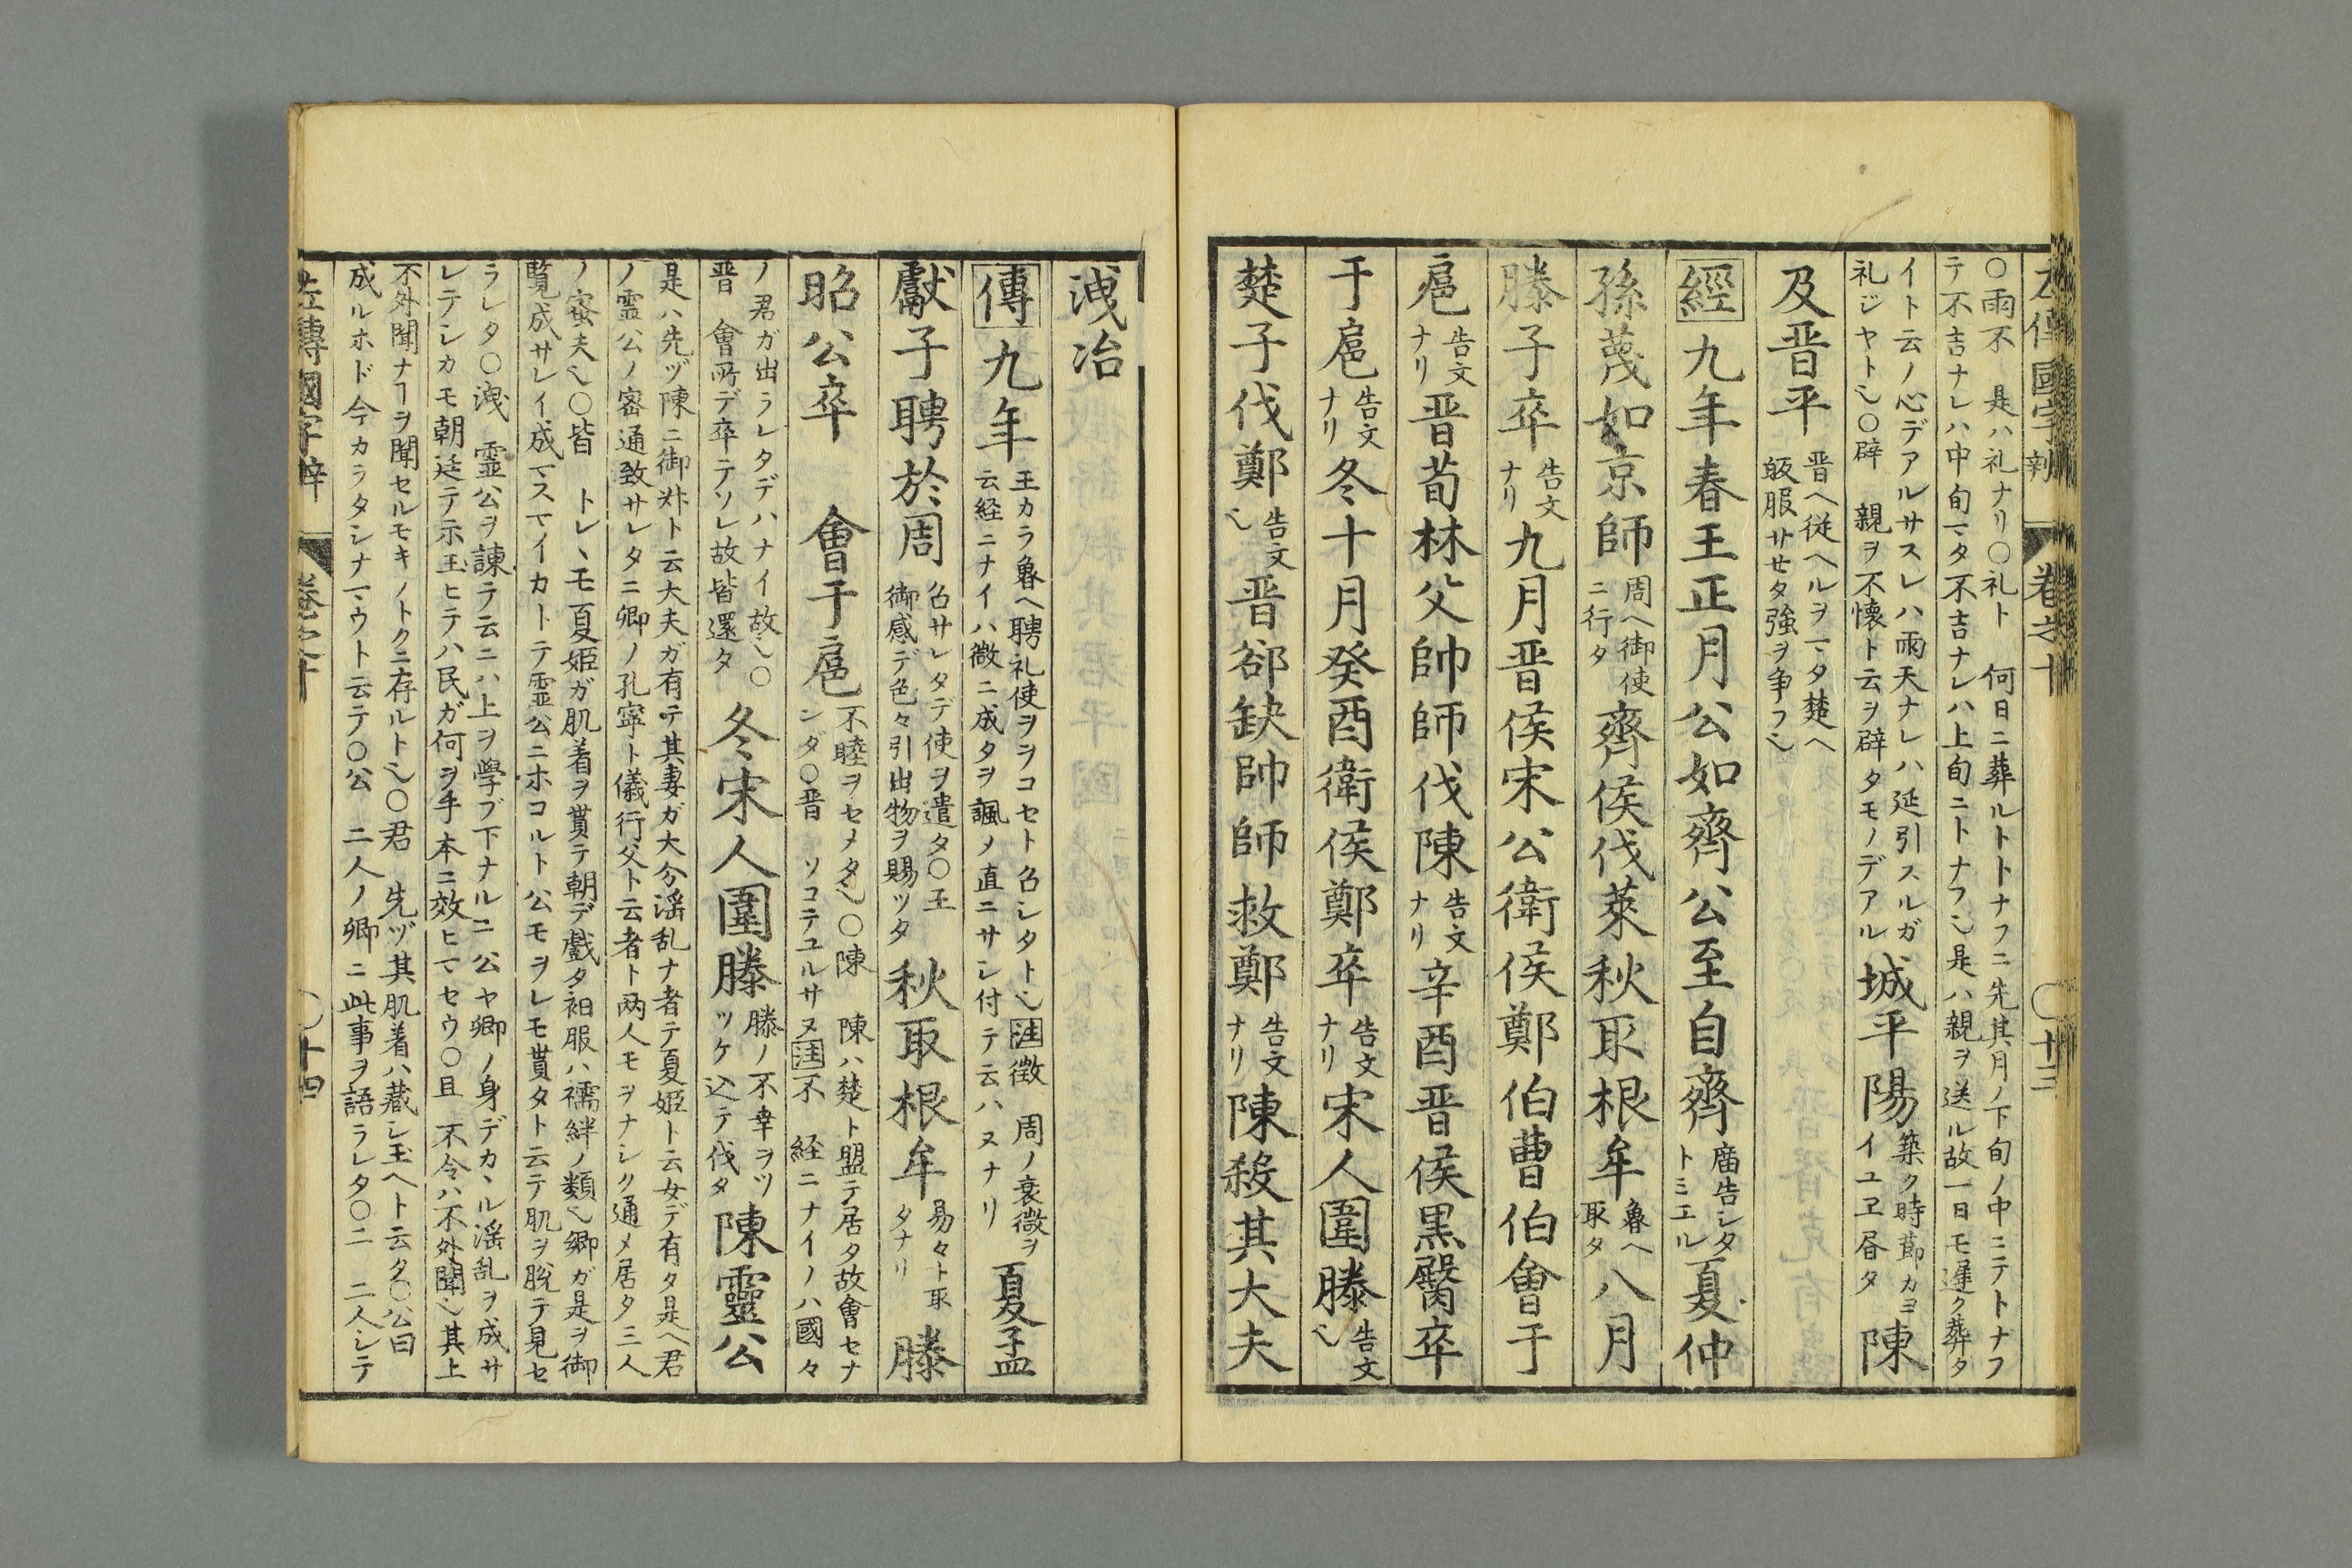 左傳國字辨 卷之十 〇廿三
〇雨不 是ハ礼ナリ〇礼ト 何日ニ葬ルトトナフニ先其月ノ下旬ノ中ニテトナフ
テ不吉ナレハ中旬マタ不吉ナレハ上旬ニトナフ也是ハ親ヲ送ル故一日モ遲ク葬タ
イト云ノ心デアルサスレハ雨天ナレハ延引スルガ
礼ジヤト也〇辟 親ヲ不懐ト云ヲ辟タモノデアル
城平陽
築ク時節カヨ
イユヱ昏タ
陳
及晋平
晋ヘ従ヘルヲマタ楚ヘ
皈服サセタ強ヲ争フ也
經九年春王正月公如齊公至自齊
廟告シタ
トミエル
夏仲
孫蔑如京師
周ヘ御使
ニ行タ
齊侯伐萊秋取根牟
魯ヘ
取タ
八月
滕子卒
告文
ナリ
九月晋侯宋公衛侯鄭伯曹伯會于
扈
告文
ナリ
晋荀林父帥師伐陳
告文
ナリ
辛酉晋侯黒臀卒
于扈
告文
ナリ
冬十月癸酉衛侯鄭卒
告文
ナリ
宋人圍滕
告文
也
楚子伐鄭
告文
也
晋郤缺帥師救鄭
告文
ナリ
陳殺其大夫
洩冶
傳九年
王カラ魯ヘ聘礼使ヲヲコセト召シタト也注徴 周ノ衰微ヲ
云経ニナイハ微ニ成タヲ諷ノ直ニサシ付テ云ハヌナリ
夏孟
獻子聘於周
召サレタデ使ヲ遣タ〇王
御感デ色々引出物ヲ賜ツタ
秋取根牟
易々ト取
タナリ
滕
昭公卒 會于扈
不睦ヲセメタ也〇陳 陳ハ楚ト盟テ居タ故會セナ
ンダ〇晋 ソコテユルサヌ注不 経ニナイノハ國々
ノ君ガ出ラレタデハナイ故也〇
晋 會所デ卒テソレ故皆還タ
冬宋人圍滕
滕ノ不幸ヲツ
ツケ込テ伐タ
陳靈公
是ハ先ヅ陳ニ御外ト云大夫ガ有テ其妻ガ大分滛乱ナ者テ夏姫ト云女デ有タ是ヘ君
ノ霊公ノ密通致サレタニ卿ノ孔寧ト儀行父ト云者ト両人モヲナシク通メ居タ三人
ノ蜜夫也〇皆 トレヽモ夏姫ガ肌着ヲ貰テ朝デ戯タ衵服ハ襦絆ノ類也卿ガ是ヲ御
覧成サレイ成マスマイカトテ霊公ニホコルト公モヲレモ貰タト云テ肌ヲ脱テ見セ
ラレタ〇洩 霊公ヲ諫テ云ニハ上ヲ學ブ下ナルニ公ヤ卿ノ身デカヽル滛乱ヲ成サ
レテシカモ朝廷テ示玉ヒテハ民ガ何ヲ手本ニ效ヒマセウ〇且 不令ハ不外聞也其上
不外聞ナヿヲ聞セルモキノトクニ存ルト也〇君 先ヅ其肌着ハ蔵シ玉ヘト云タ〇公曰
成ルホド今カラタシナマウト云テ〇公 二人ノ卿ニ此事ヲ語ラレタ〇二 二人シテ
左傳國字辨 卷之十 〇十四